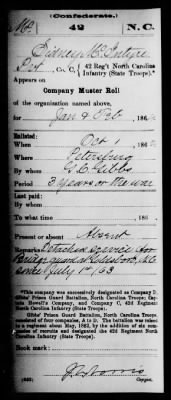 (Confederate.)
Mc 42 N.C.
Sidney McIntyre
Pvt, Co. C, 42 Reg't North Carolina Infantry (State Troops).*
Appears on
Company Muster Roll
of the organization named above,
for Jan & Feb, 186
Enlisted:
When Oct 1, 186
Where Petersburg
By whom G. C. Gibbs
Period 3 years or the war
Last paid:
By whom
To what time, 186
Present or absent Absent
Remarks: Detached service for
Brig guard
since July 1st /63
*This company was successively designated as Company D, Gibbs' Prison Guard Battalion, North Carolina Troops; Captain Howell's Company, and Company C, 42d Regiment North Carolina Infantry (State Troops).
Gibbs' Prison Guard Battalion, North Carolina Troops, consisted of four companies, A to D. The battalion was raised to a regiment about May, 1862, by the addition of six companies of recruits and designated the 42d Regiment North Carolina Infantry (State Troops).
Book mark:
(642)
Copyist.